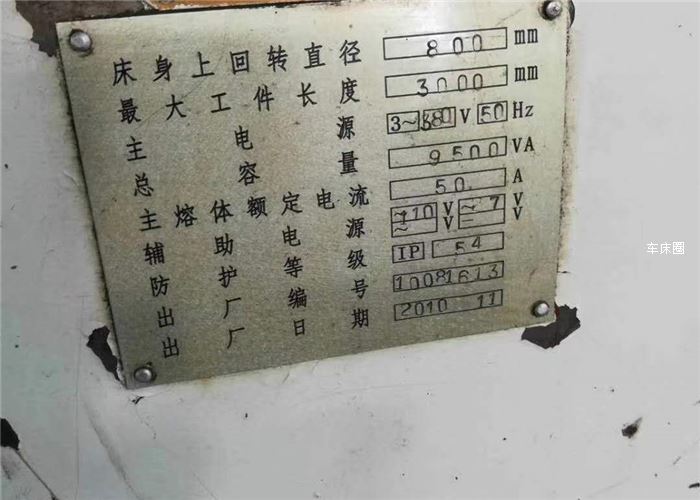 床身上回转直径 800 mm
最大工件长度 3000 mm
主电源 3~ 380 V 50 Hz
总容量 9500 VA
主熔体额定电流 50 A
辅助电源 ~110 V ~ 7 V
~ V ~ V
防护等级 IP 54
出厂编号 10081613
出厂日期 2010 11
车床圈